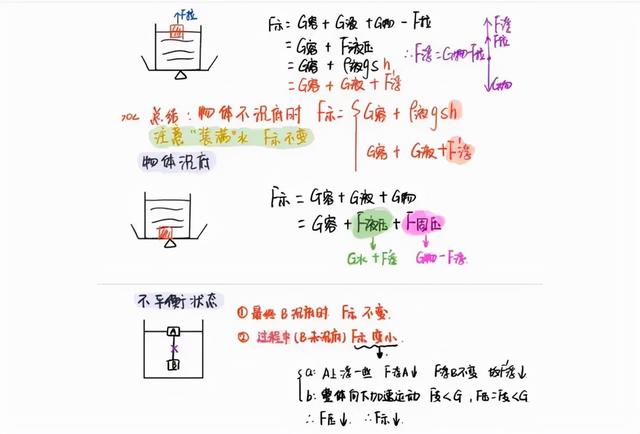 ↑F拉
F示 = G容 + G液 + G物 - F拉
= G容 + F液压
= G容 + ρ液gsh
= G容 + G液 + F浮
F浮
F拉
∴F浮=G物-F拉
G物
总结: 物体不沉底时 F示= G容 + ρ液gsh
G容 + G液+F浮
注意"装满"水 F示不变
物体沉底
F示 = G容 + G液 + G物
= G容 + F液压 + F固压
G水 + F浮 G物-F浮
不平衡状态
A
B
① 最终 B沉底时 F示 不变.
② 过程中(B未沉底) F示 变小.
a: A上浮一些 F浮A↓ F浮B不变 故F浮↓
b: 整体向下加速运动 F支<G , F压=F支<G
∴F压↓. ∴F示↓.